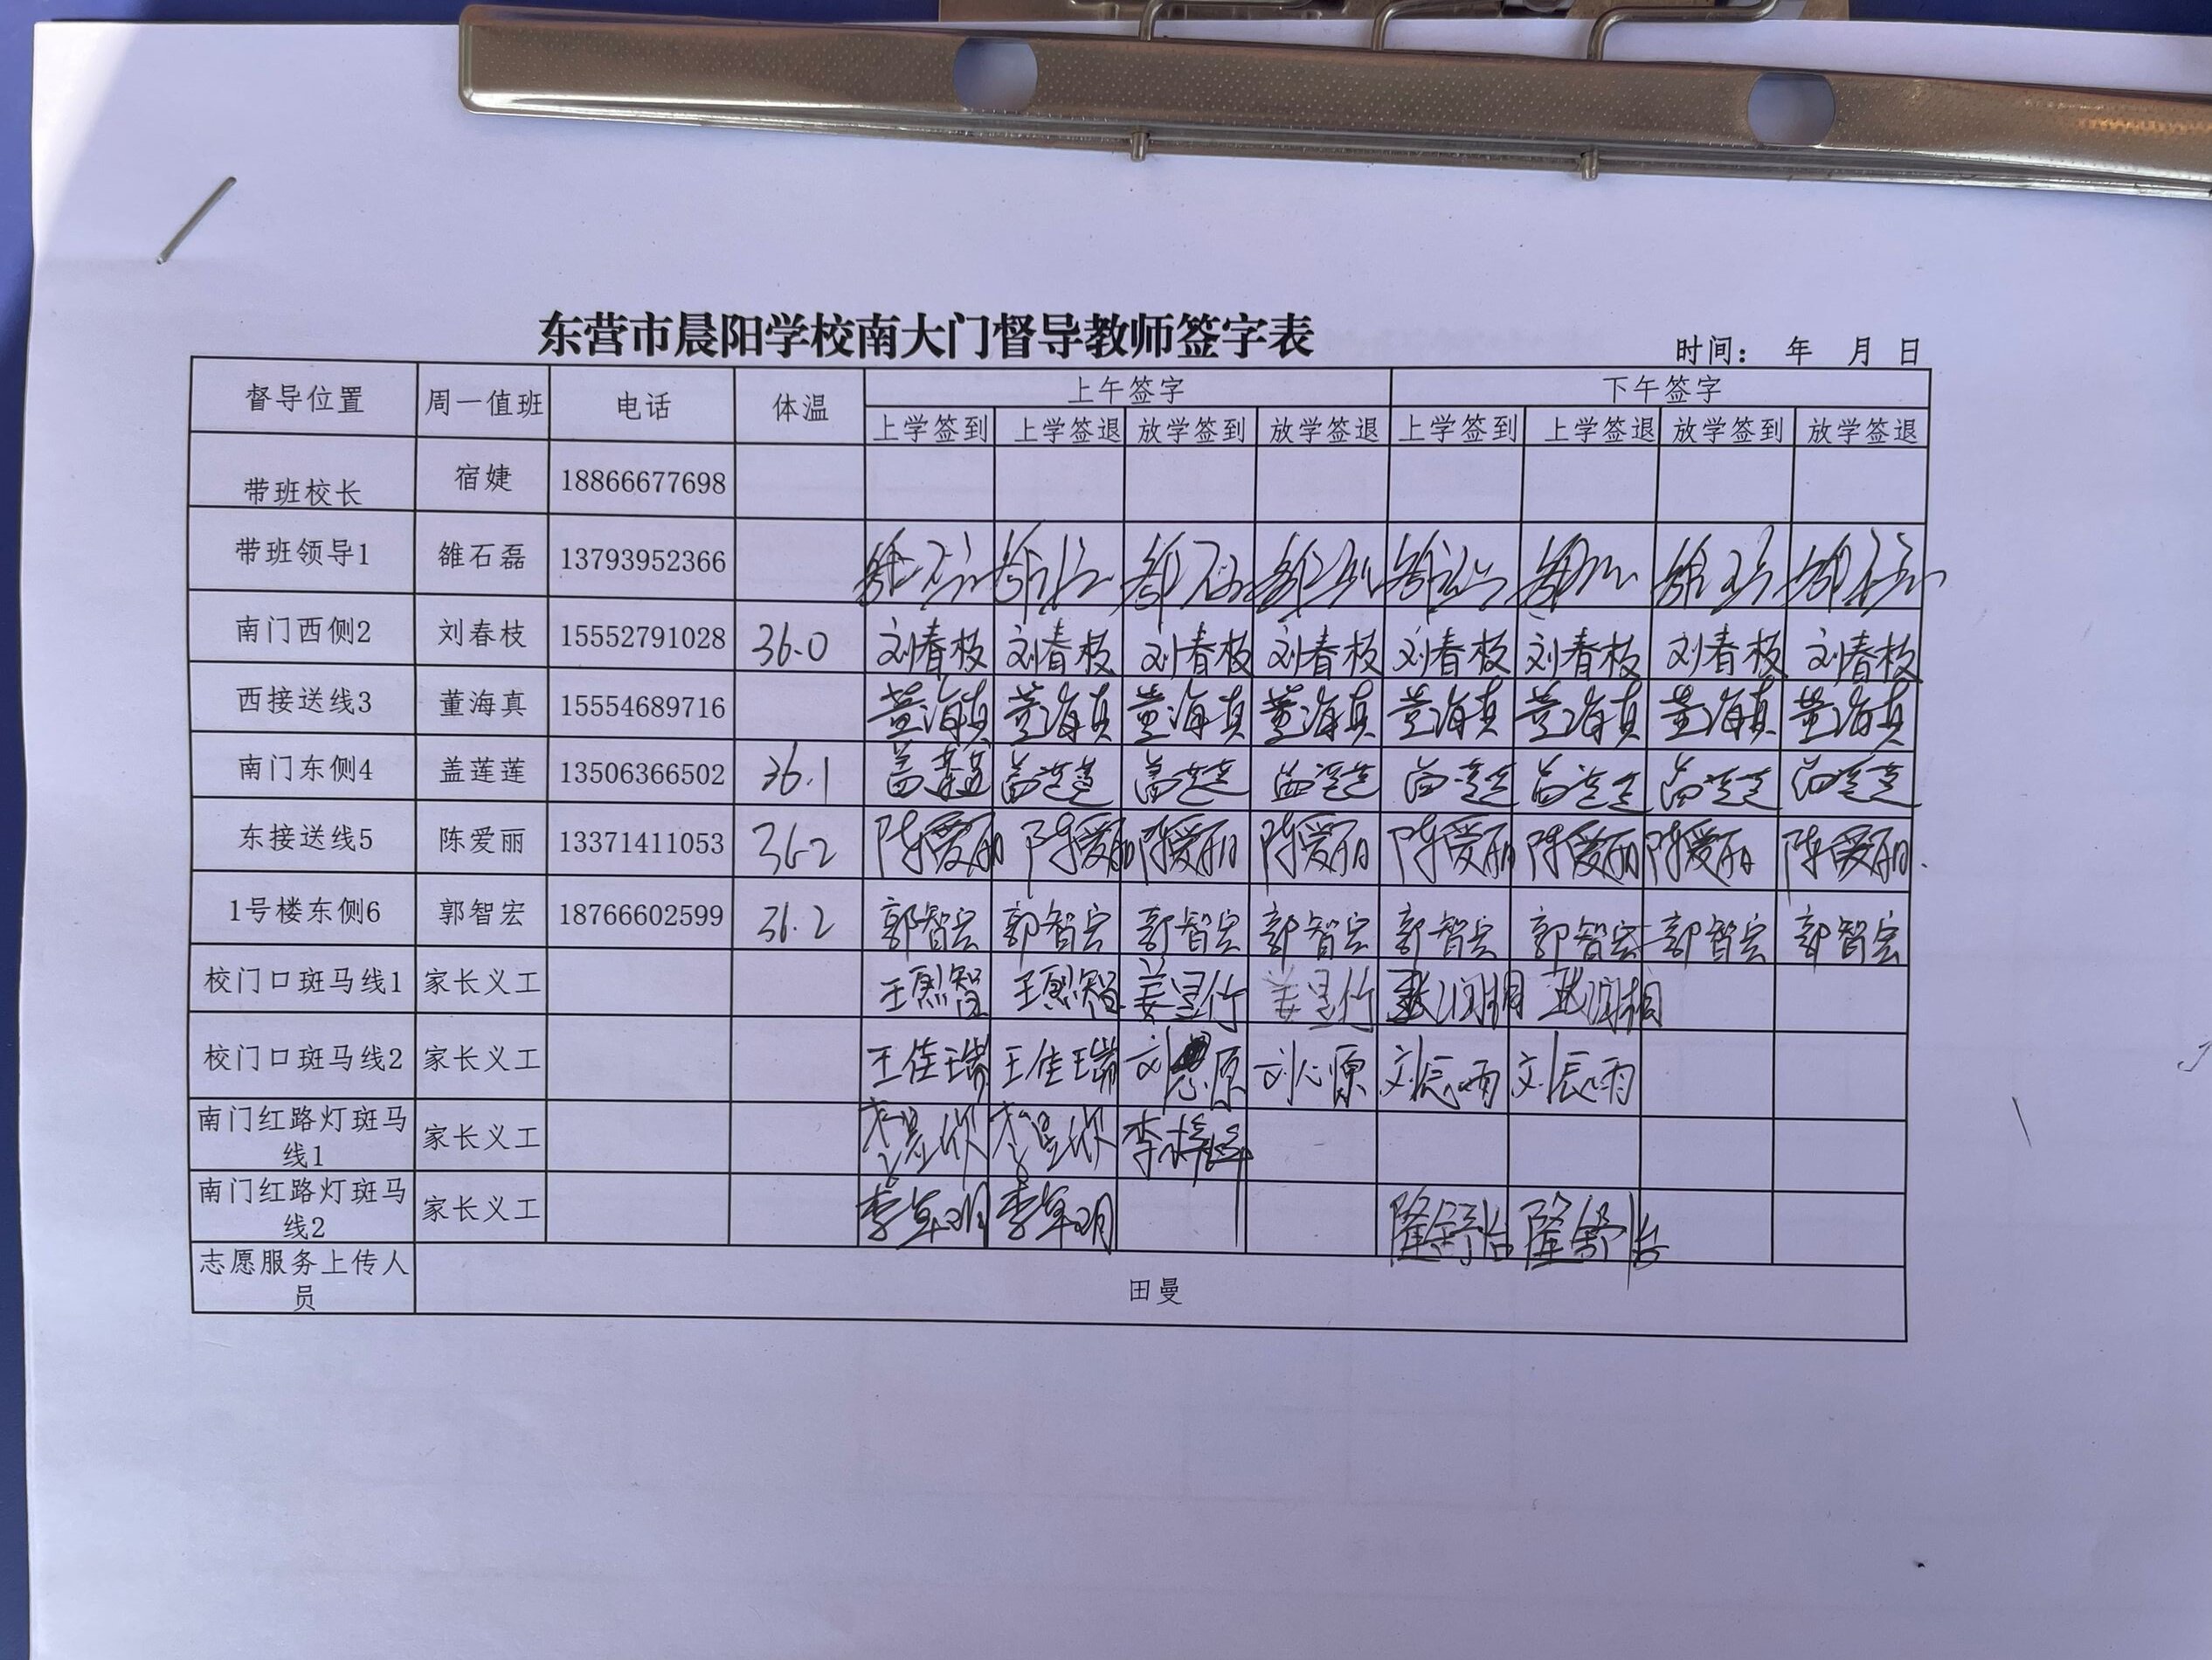 东营市晨阳学校南大门督导教师签字表
时间： 年 月 日
督导位置 周一值班 电话 体温 上午签字 下午签字
上学签到 上学签退 放学签到 放学签退 上学签到 上学签退 放学签到 放学签退
带班校长 宿婕 18866677698
带班领导1 雒石磊 13793952366
南门西侧2 刘春枝 15552791028 36.0 刘春枝 刘春枝 刘春枝 刘春枝 刘春枝 刘春枝 刘春枝 刘春枝
西接送线3 董海真 15554689716 董海真 董海真 董海真 董海真 董海真 董海真 董海真 董海真
南门东侧4 盖莲莲 13506366502 36.1 盖莲莲 盖莲莲 盖莲莲 盖莲莲 盖莲莲 盖莲莲 盖莲莲 盖莲莲
东接送线5 陈爱丽 13371411053 36.2 陈爱丽 陈爱丽 陈爱丽 陈爱丽 陈爱丽 陈爱丽 陈爱丽 陈爱丽
1号楼东侧6 郭智宏 18766602599 36.2 郭智宏 郭智宏 郭智宏 郭智宏 郭智宏 郭智宏 郭智宏 郭智宏
校门口斑马线1 家长义工 王熙智 王熙智
校门口斑马线2 家长义工 王佳瑞 王佳瑞 刘辰雨 刘辰雨
南门红路灯斑马
线1 家长义工
南门红路灯斑马
线2 家长义工 隆舒怡 隆舒怡
志愿服务上传人
员 田曼